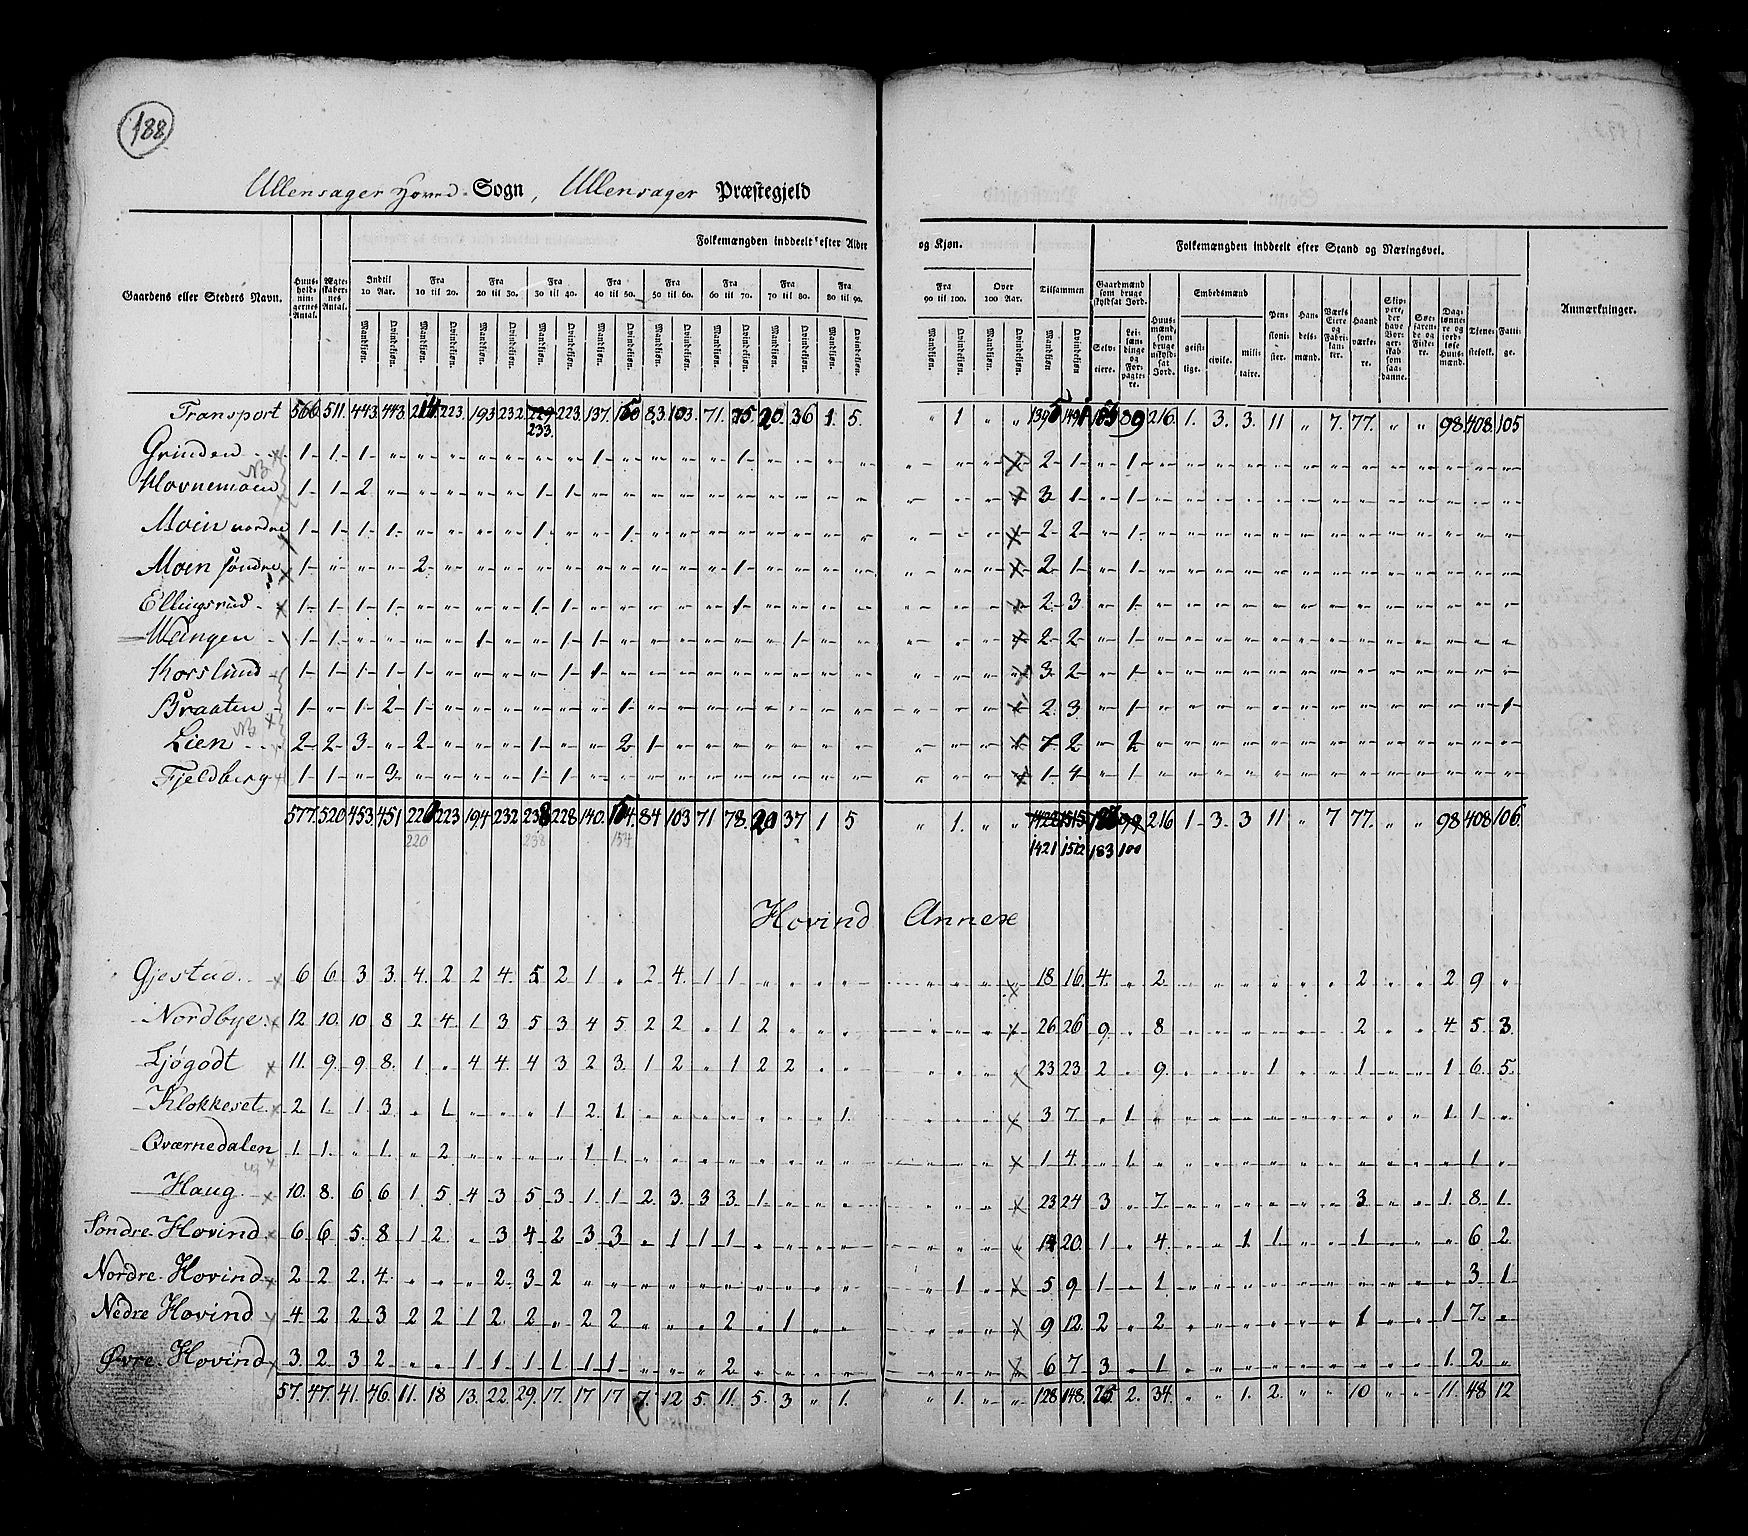 188
Ullensager Hoved Sogn, Ullensager Præstegjeld
Gaardens eller Steders Navn. Huusholdningernes Antal. Ægteskabernes Antal. Folkemængden inddeelt efter Alder og Kjøn. Tilsammen Folkemængden inddeelt efter Stand og Næringsvei. Anmærkninger.
Indtil 10 Aar. Fra 10 til 20. Fra 20 til 30. Fra 30 til 40. Fra 40 til 50. Fra 50 til 60. Fra 60 til 70. Fra 70 til 80. Fra 80 til 90. Fra 90 til 100. Over 100 Aar.
Mandkjøn. Qvindekjøn. Mandkjøn. Qvindekjøn. Mandkjøn. Qvindekjøn. Mandkjøn. Qvindekjøn. Mandkjøn. Qvindekjøn. Mandkjøn. Qvindekjøn. Mandkjøn. Qvindekjøn. Mandkjøn. Qvindekjøn. Mandkjøn. Qvindekjøn. Mandkjøn. Qvindekjøn. Mandkjøn. Qvindekjøn. Mandkjøn. Qvindekjøn.
Gaardmænd som bruge skyldsat Jord. Selveiere. Leilændinge og Forpagtere. Huusmænd, som bruge uskyldsat Jord. Embedsmænd geistlige. civile. militaire. Pensionister. Handelsmænd. Værks Eiere og Fabrikanter. Haandværkere. Skippere, der have Borgerskab som saadanne. Søefarende og Fiskere. Daglønnere og jordløse Huusmænd. Tjenestefolk. Fattige.
Transport 566. 511. 443. 443. 214 223. 193 232. 229 223. 137. 150 83. 103. 71. 75. 20. 36 1. 5. „ 1 „ „ 1395 1491 183 89 216. 1. 3. 3. 11 „ 7. 77. „ „ 98 408. 105
233.
Grinden 1 1 „ „ „ „ „ „ „ „ 1 „ „ „ „ 1 „ „ „ „ „ „ „ × 2 1 „ 1 „ „ „ „ „ „ „ „ „ „ „ „ „
NB
Hovnemoen 1 1 2 „ „ „ „ „ 1 1 „ „ „ „ „ „ „ „ „ „ „ „ „ × 3 1 „ 1 „ „ „ „ „ „ „ „ „ „ „ „ „
Moin nordre 1 1 1 1 „ „ „ „ 1 „ „ 1 „ „ „ „ „ „ „ „ „ „ „ × 2 2 „ 1 „ „ „ „ „ „ „ „ „ „ „ „ „
Moen søndre 1 „ „ „ 2 „ „ „ „ „ „ „ „ „ „ 1 „ „ „ „ „ „ „ × 2 1 „ 1 „ „ „ „ „ „ „ „ „ „ „ „ „
Ellingsrud 1 1 1 1 „ „ „ „ 1 1 „ „ „ „ „ 1 „ „ „ „ „ „ „ × 2 3 „ 1 „ „ „ „ „ „ „ „ „ „ „ „ „
Wangen 1 1 „ „ „ „ 1 „ „ 1 1 „ „ „ „ „ „ 1 „ „ „ „ „ × 2 2 „ 1 „ „ „ „ „ „ „ „ „ „ „ „ „
Korslund 1 1 1 1 1 „ „ „ „ 1 1 „ „ „ „ „ „ „ „ „ „ „ „ × 3 2 „ 1 „ „ „ „ „ „ „ „ „ „ „ „ „
Braaten 1 „ 1 2 1 „ „ „ „ „ „ 1 „ „ „ „ „ „ „ „ „ „ „ × 2 3 „ 1 „ „ „ „ „ „ „ „ „ „ „ „ 1
NB
Lien 2 2 3 „ 2 „ „ „ 1 „ „ 2 1 „ „ „ „ „ „ „ „ „ „ × 7 2 „ 2 „ „ „ „ „ „ „ „ „ „ „ „ „
Fjeldberg 1 1 „ 3 „ „ „ „ 1 1 „ „ „ „ „ „ „ „ „ „ „ „ „ × 1 4 „ 1 „ „ „ „ „ „ „ „ „ „ „ „ „
577. 520 453. 451 220 223 194 232 238 228 140. 154. 84 103 71 78. 20 37 1 5 „ 1. „ „ 1422 1515 99 216 1 3. 3 11 „ 7 77. „ „ 98 408 106.
220 238 154. 1421 1512 183 100
Hovind Annex
Gjestad × 6 6 3 3 4. 2 2 4. 5 2 1 „ 2 4. 1 1 „ „ „ „ „ „ „ × 18 16 4 „ 2 „ „ „ „ „ „ 2 „ „ 2 9 „
Nordbye × 12. 10. 10 8 2 4. 1 3 5 3 4 5. 2 2 „ 1 2 „ „ „ „ „ „ × 26 26 9 „ 8 „ „ „ „ „ „ 2 „ „ 4. 5. 3
Ljøgodt × 11. 9. 9 8. 1 „ 4 4. 4 3 2 3. 1 2 „ 1 2 2 „ „ „ „ „ × 23 23 2 „ 9. „ „ „ 1 „ „ 1 „ „ 1 6. 5
Klokkeset × 2 1. 1 3. „ 1 „ „ „ 1 2. 1. „ „ „ „ „ „ „ 1. „ „ „ × 3 7. „ 1 „ „ „ „ „ „ „ „ „ „ 1. 1. „
Qværnedalen × 1. 1. „ 1. „ 2. „ „ „ „ 1 1 „ „ „ „ „ „ „ „ „ „ „ × 1 4. „ 1 „ „ „ „ „ „ „ „ „ „ „ 1 „
Haug × 10. 8. 6 6 1 5. 4 3 5 3. 1 1 2. 3. 3 3 1 „ „ „ „ „ „ × 23 24 3 „ 7. „ „ „ „ „ „ 3 „ „ 1. 8. 1
Søndre Hovind × 6 6 5 8 1 2 „ 3 4 2 3 3 „ 1 1 1 „ „ „ „ „ „ „ × 14 20. 1 „ 4 „ „ 1 1 „ „ 1 „ „ „ 6 2
Nordre Hovind × 2 2 2. 4. „ „ „ 2 3 2 „ „ „ „ „ „ „ „ „ „ „ 1 „ × 5 9 1 „ 1 „ „ „ „ „ „ „ „ „ „ 3 1
Nedre Hovind × 4 2 2 3 2 2 1 2. 2 „ 2 2 „ „ „ 2 „ 1 „ „ „ „ „ × 9 12. 2 „ 2 „ „ „ „ „ „ 1 „ „ 1 7. „
Øvre Hovind × 3. 2 3 2. „ „ 1 1 1 1. 1 1 „ „ „ 2 „ „ „ „ „ „ „ × 6 7 3 „ 1 „ „ „ „ „ „ „ „ „ 1. 2 „
57. 47. 41. 46. 11. 18 13. 22. 29. 17. 17 17 7. 12 5. 11. 5. 3 „ 1. „ 1. „ „ 128 148. 25 2. 34. „ „ 1. 2. „ „ 10 „ „ 11. 48 12